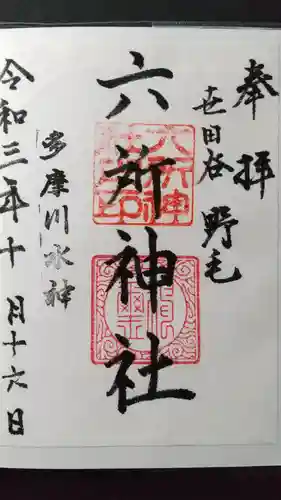 奉拝
世田谷野毛
六所神社
多摩川水神
令和三年十月十六日